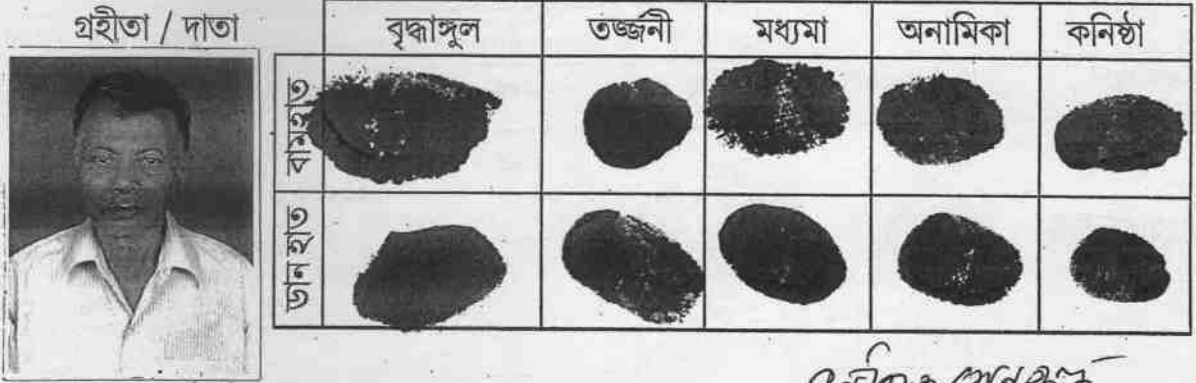 গ্রহীতা / দাতা
বৃদ্ধাঙ্গুল তর্জ্জনী মধ্যমা অনামিকা কনিষ্ঠা
বামহাত
ডান হাত